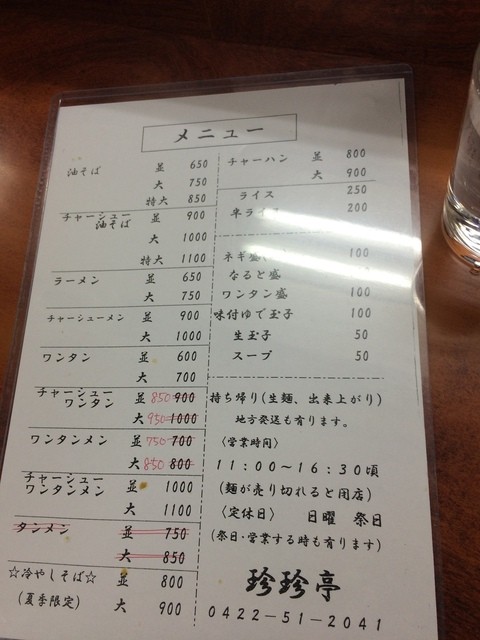 メニュー
油そば 並 650
大 750
特大 850
チャーシュー 並 900
油そば
大 1000
特大 1100
ラーメン 並 650
大 750
チャーシューメン 並 900
大 1000
ワンタン 並 600
大 700
チャーシュー
ワンタン 並 850 900
大 950 1000
ワンタンメン 並 750 700
大 850 800
チャーシュー
ワンタンメン 並 1000
大 1100
タンメン 並 750
大 850
☆冷やしそば☆ 並 800
(夏季限定) 大 900
チャーハン 並 800
大 900
ライス 250
半ライス 200
ネギ盛 100
なると盛 100
ワンタン盛 100
味付ゆで玉子 100
生玉子 50
スープ 50
持ち帰り(生麺、出来上がり)
地方発送も有ります。
〈営業時間〉
11:00〜16:30頃
(麺が売り切れると閉店)
〈定休日〉 日曜 祭日
(祭日・営業する時も有ります)
珍珍亭
0422-51-2041